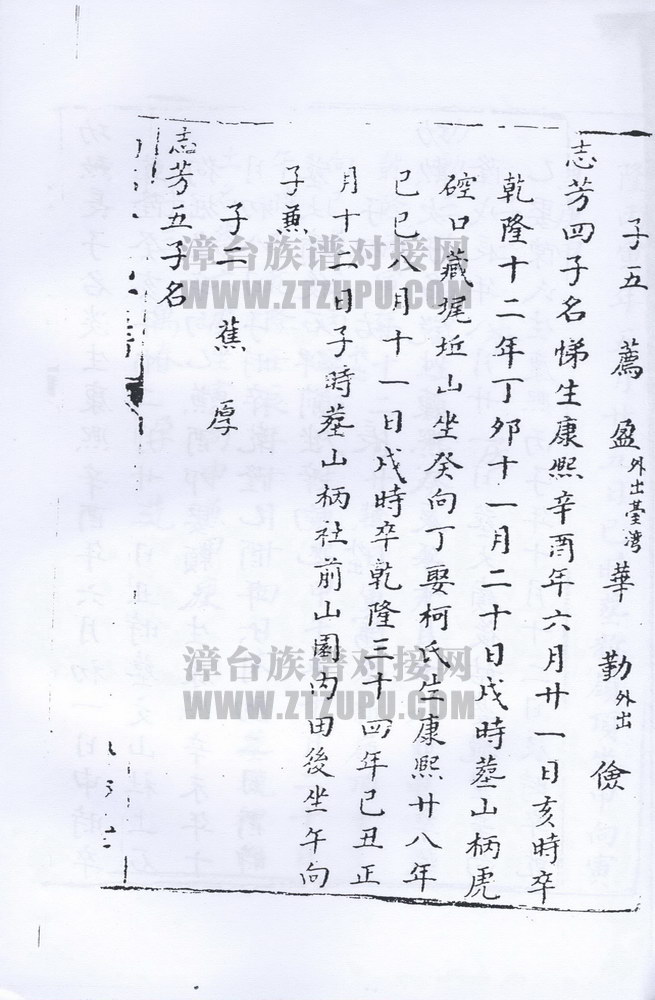 子五 薦 盈外出臺湾 華 勤外出 儉
志芳四子名悌生康熙辛酉年六月廿一日亥時卒
乾隆十二年丁卯十一月二十日戌時墓山柄虎
硿口藏坭坵山坐癸向丁娶柯氏生康熙廿八年
己巳八月十一日戌時卒乾隆三十四年己丑正
月十二日子時墓山柄社前山園内田後坐午向
子兼
子二 蕉 厚
志芳五子名
漳台族谱对接网
WWW.ZTZUPU.COM
漳台族谱对接网
WWW.ZTZUPU.COM